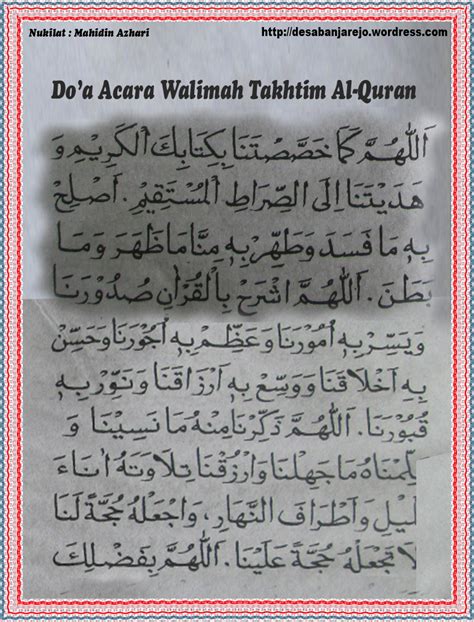 Nukilat : Mahidin Azhari
http://desabanjarejo.wordpress.com
Do'a Acara Walimah Takhtim Al-Quran
اَللّٰهُمَّ كَمَا خَصَّصْتَنَا بِكِتَابِكَ الْكَرِيْمِ وَ
هَدَيْتَنَا اِلَى الصِّرَاطِ الْمُسْتَقِيْمِ. اَصْلِحْ
بِهِ مَا فَسَدَ وَطَهِّرْ بِهِ مِنَّا مَا ظَهَرَ وَمَا
بَطَنَ. اَللّٰهُمَّ اشْرَحْ بِالْقُرْاٰنِ صُدُوْرَنَا
وَيَسِّرْ بِهِ اُمُوْرَنَا وَعَظِّمْ بِهِ اُجُوْرَنَا وَحَسِّنْ
بِهِ اَخْلَاقَنَا وَوَسِّعْ بِهِ اَرْزَاقَنَا وَنَوِّرْ بِهِ
قُبُوْرَنَا. اَللّٰهُمَّ ذَكِّرْنَا مِنْهُ مَا نَسِيْنَا وَ
عَلِّمْنَاهُ مَا جَهِلْنَا وَارْزُقْنَا تِلَاوَتَهُ اٰنَاءَ
لَّيْلِ وَاَطْرَافَ النَّهَارِ، وَاجْعَلْهُ حُجَّةً لَنَا
لَا تَجْعَلْهُ حُجَّةً عَلَيْنَا. اَللّٰهُمَّ بِفَضْلِكَ